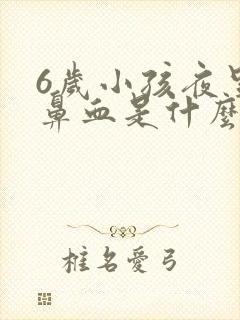 6歲小孩夜里
鼻血是什麼
椎名愛弓